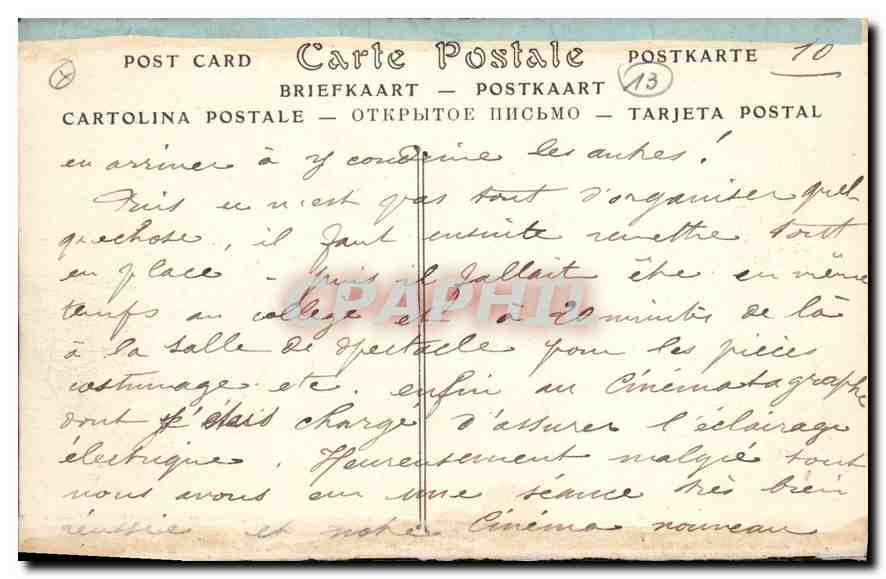 POST CARD Carte Postale POSTKARTE 10
BRIEFKAART — POSTKAART 13
CARTOLINA POSTALE — ОТКРЫТОЕ ПИСЬМО — TARJETA POSTAL
en arriver à y conduire les autres !
Puis ce n'est pas tout d'organiser quel-
quechose, il faut ensuite remettre tout
en place - puis il fallait être en même
temps au collège et à 20 minutes de là
à la salle de spectacle pour les pièces
costumage etc. enfin au Cinématographe
dont j'étais chargé d'assurer l'éclairage
électrique. Heureusement malgré tout
nous avons eu une séance très bien
réussie et notre Cinéma nouveau
CPAPHIL